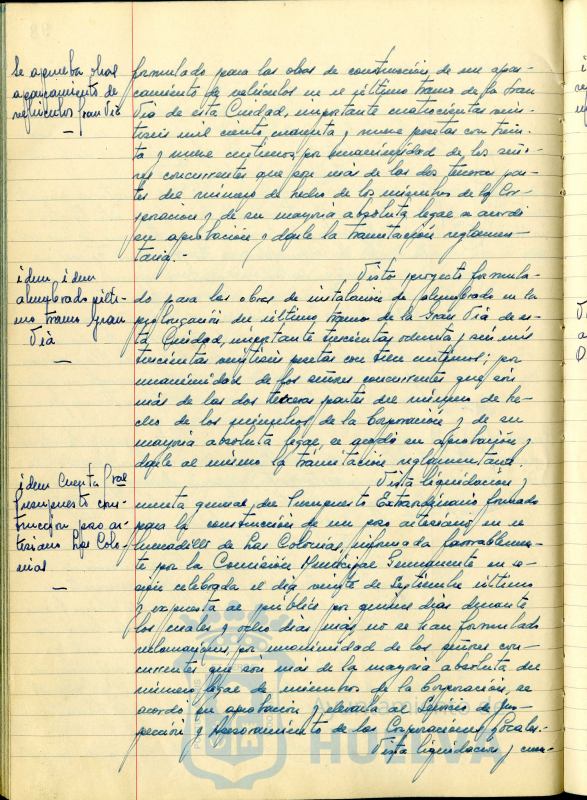 Se aprueba obras
aparcamiento de
vehiculos Gran Via
formulado para las obras de construcción de un apar-
camiento de vehiculos en el último tramo de la Gran
Via de esta Ciudad, importante cuatrocientas vein-
tiseis mil ciento cuarenta y nueve pesetas con trein-
ta y nueve centimos, por unanimidad de los seño-
res concurrentes que son más de las dos terceras par-
tes del número de hecho de los miembros de la Cor-
poración y de su mayoria absoluta legal se acordó
su aprobación y darle la tramitación reglamen-
taria.-
idem, idem
alumbrado últi-
mo tramo Gran
Via
Visto proyecto formula-
do para las obras de instalación de alumbrado en la
prolongación del último tramo de la Gran Via de es-
ta Ciudad, importante trescientas ochenta y seis mil
trescientas veintiseis pesetas con trece centimos; por
unanimidad de los señores concurrentes que son
más de las dos terceras partes del número de he-
cho de los miembros de la Corporación y de su
mayoria absoluta legal, se acordó su aprobación y
darle al mismo la tramitación reglamentaria.
idem Cuenta Gral
Presupuesto cons-
trucción pozo ar-
tesiano Las Colo-
nias
Vista liquidación y
cuenta general del Presupuesto Extraordinario formado
para la construcción de un pozo artesiano en el
Humeradillo de Las Colonias, informada favorablemen-
te por la Comisión Municipal Permanente en se-
sión celebrada el dia veinte de Septiembre último
y expuesta al público por quince dias durante
los cuales y ocho dias más no se han formulado
reclamaciones, por unanimidad de los señores con-
currentes que son más de la mayoria absoluta del
número legal de miembros de la Corporación, se
acordó su aprobación y elevarla al Servicio de Ins-
pección y Asesoramiento de las Corporaciones Locales.-
Vista liquidación y cuen-
HUELVA